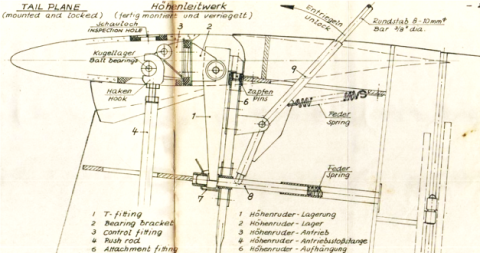 TAIL PLANE Höhenleitwerk
(mounted and locked) (fertig montiert und verriegelt)
Schauloch
INSPECTION HOLE
3
2
Entriegeln
unlock
Rundstab 8-10mmϕ
Bar 3/8" dia.
Kugellager
Ball bearings
Haken
Hook
6
Zapfen
Pins
9
Feder
Spring
4
1
Feder
Spring
7
8
1 T-fitting
2 Bearing bracket
3 Control fitting
4 Push rod
6 Attachment fitting
1 Höhenruder-Lagerung
2 Höhenruder-Lager
3 Höhenruder-Antrieb
4 Höhenruder-Antriebsstoßstange
6 Höhenruder-Aufhängung